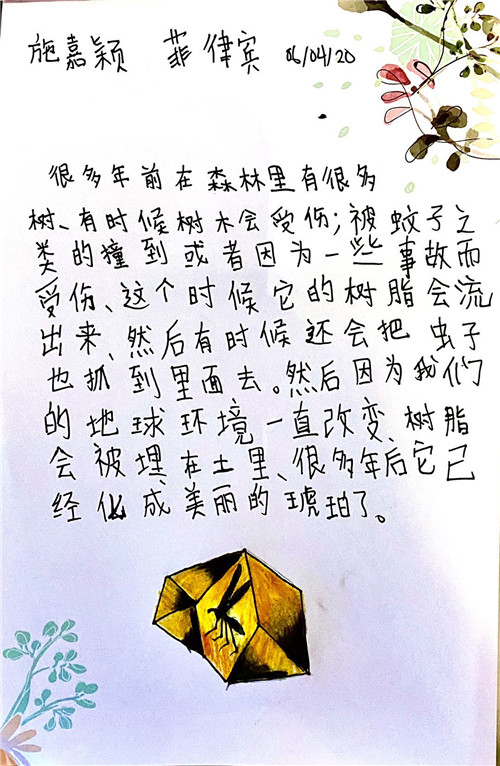 施嘉颖 菲律宾 06/04/20
很多年前在森林里有很多
树、有时候树木会受伤；被蚊子之
类的撞到或者因为一些事故而
受伤、这个时候它的树脂会流
出来、然后有时候还会把虫子
也抓到里面去。然后因为我们
的地球环境一直改变、树脂
会被埋在土里、很多年后它已
经化成美丽的琥珀了。